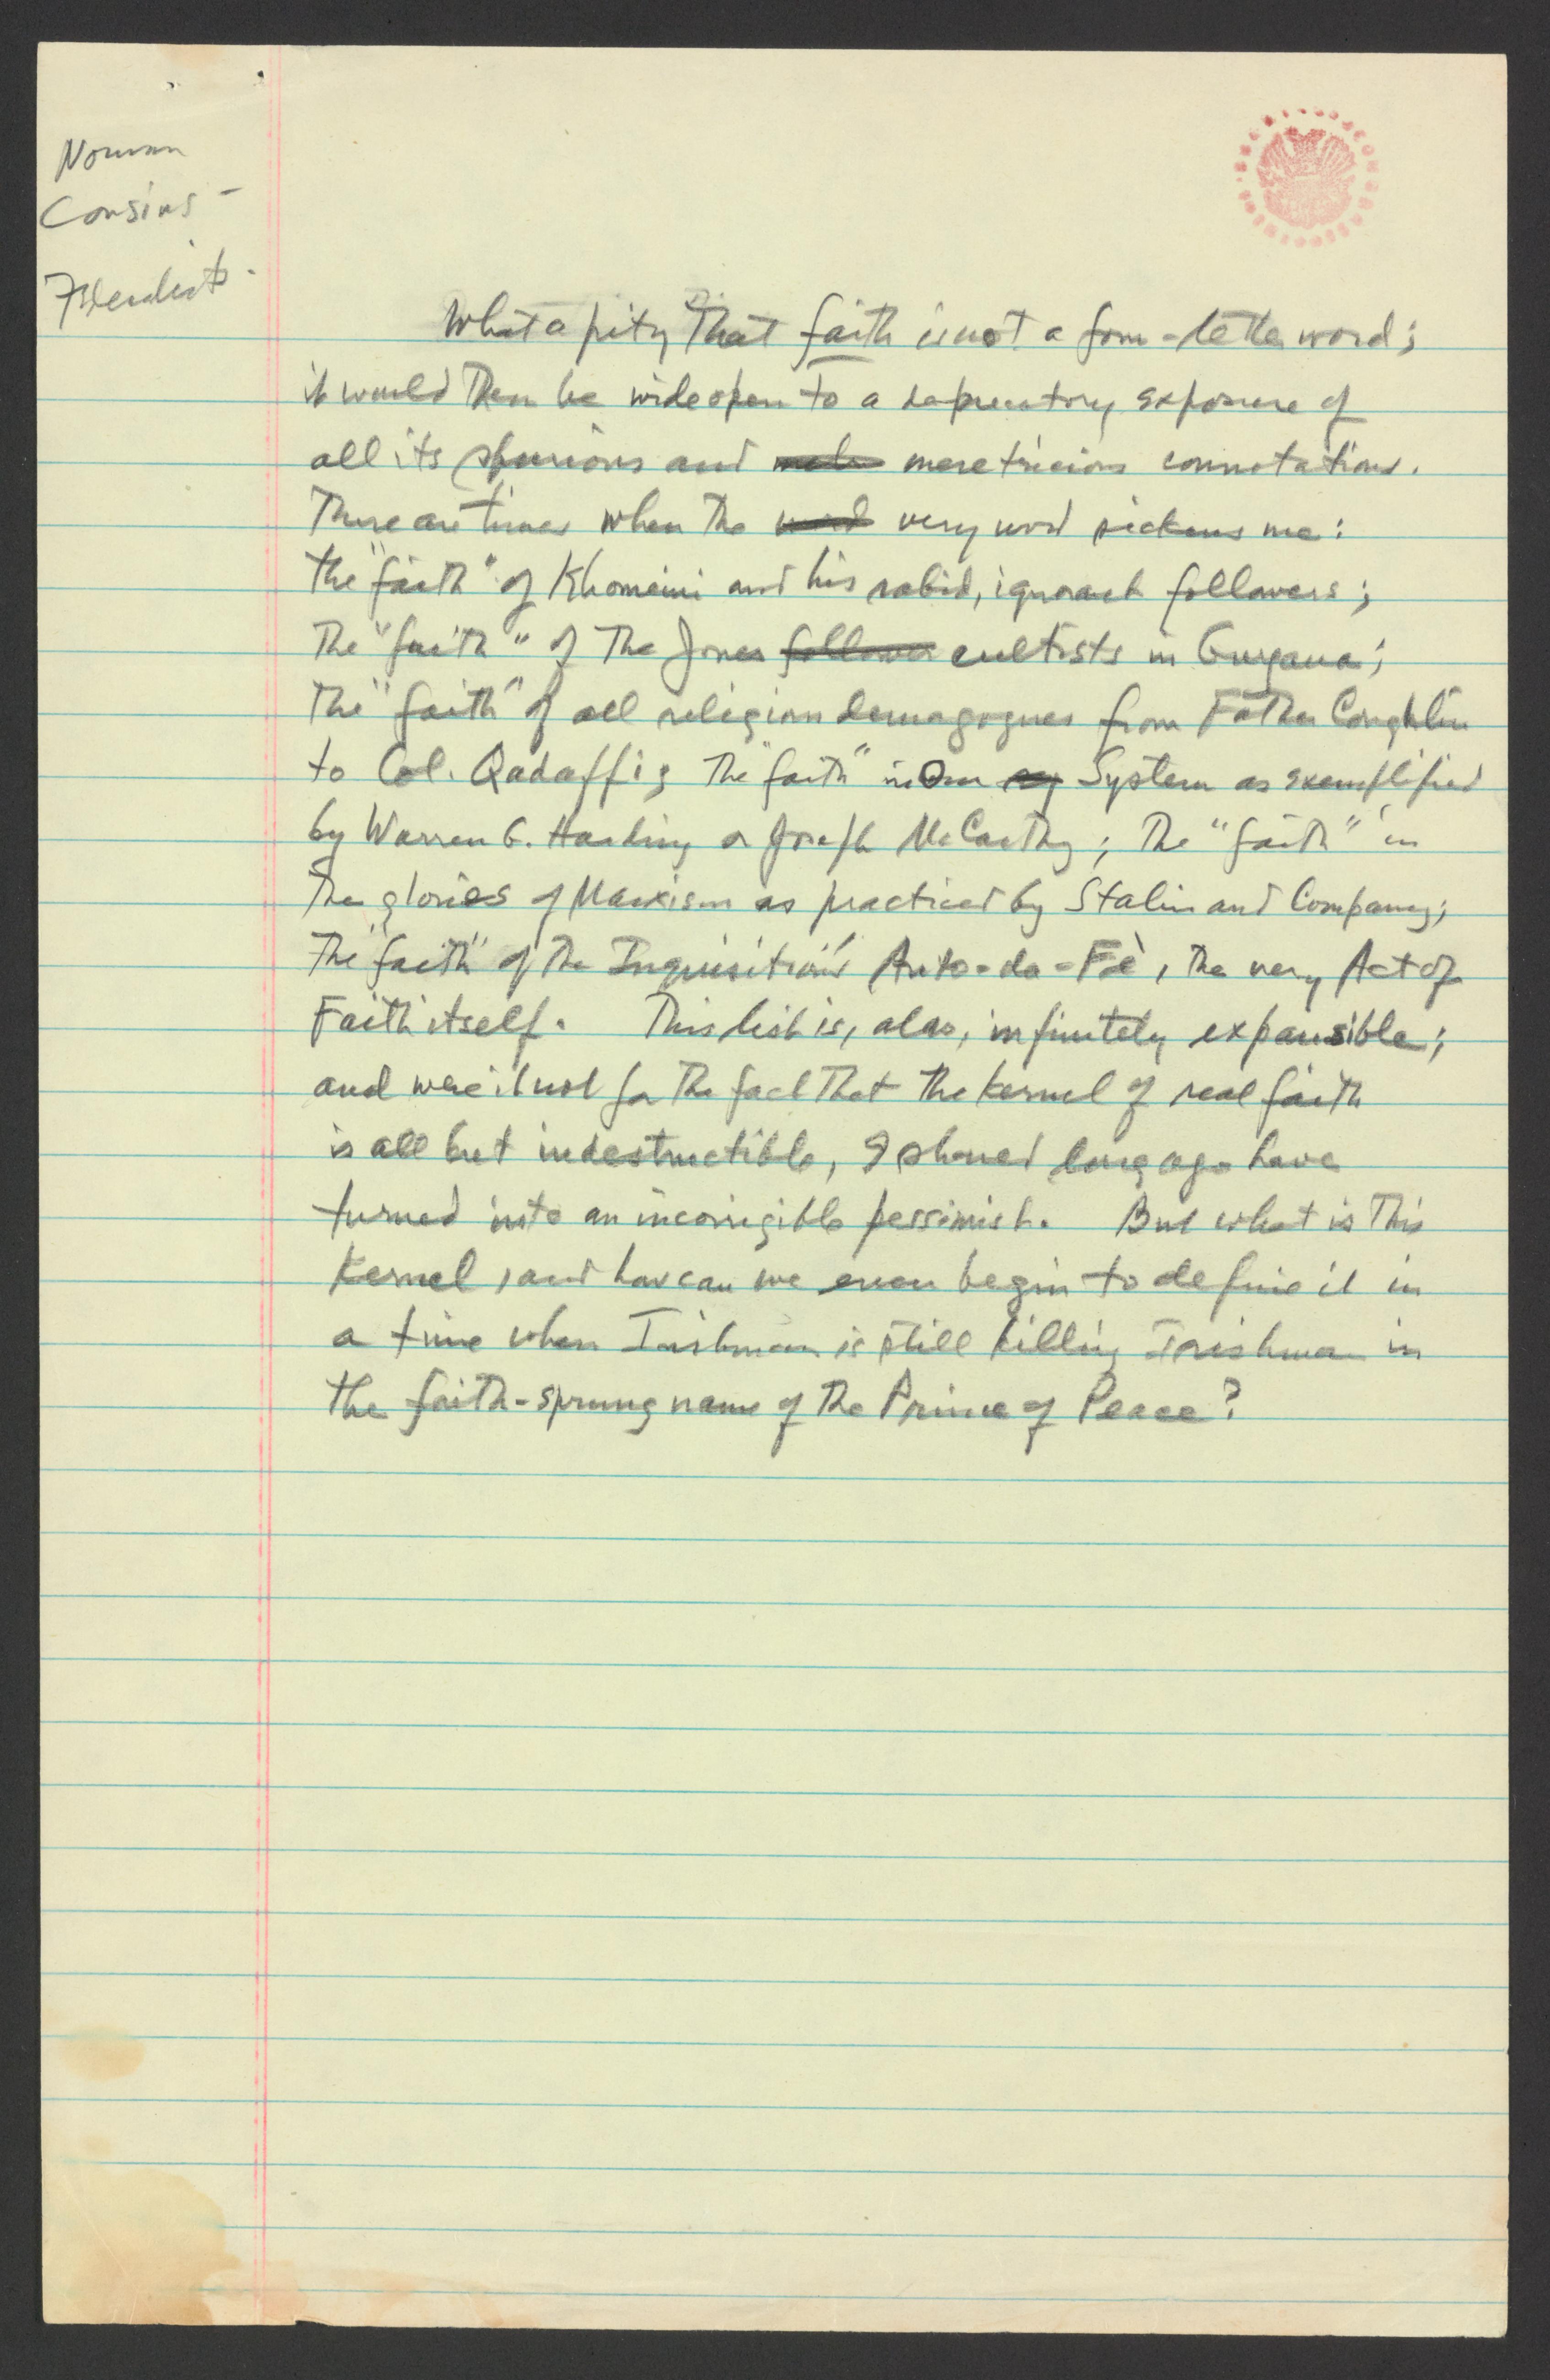 Norman
Cousins –
What a pity that faith is not a four-letter word;
it would then be wide open to a deprecatory exposure of
all its spurious and meretricious connotations.
There are times when the word very word sickens me:
the "faith" of Khomeini and his rabid, ignorant followers;
the "faith" of the Jones follower cultists in Guyana;
the "faith" of all religion demagogues from Father Coughlin
to Col. Qadaffi; the "faith" in Our System as exemplified
by Warren G. Harding or Joseph McCarthy; the "faith" in
the glories of Marxism as practiced by Stalin and Company;
the "faith" of the Inquisition's Auto-da-Fè, the very Act of
Faith itself. This list is, alas, infinitely expansible;
and were it not for the fact that the kernel of real faith
is all but indestructible, I should long ago have
turned into an incorrigible pessimist. But what is this
kernel, and how can we even begin to define it in
a time when Irishman is still killing Irishman in
the faith-sprung name of the Prince of Peace?